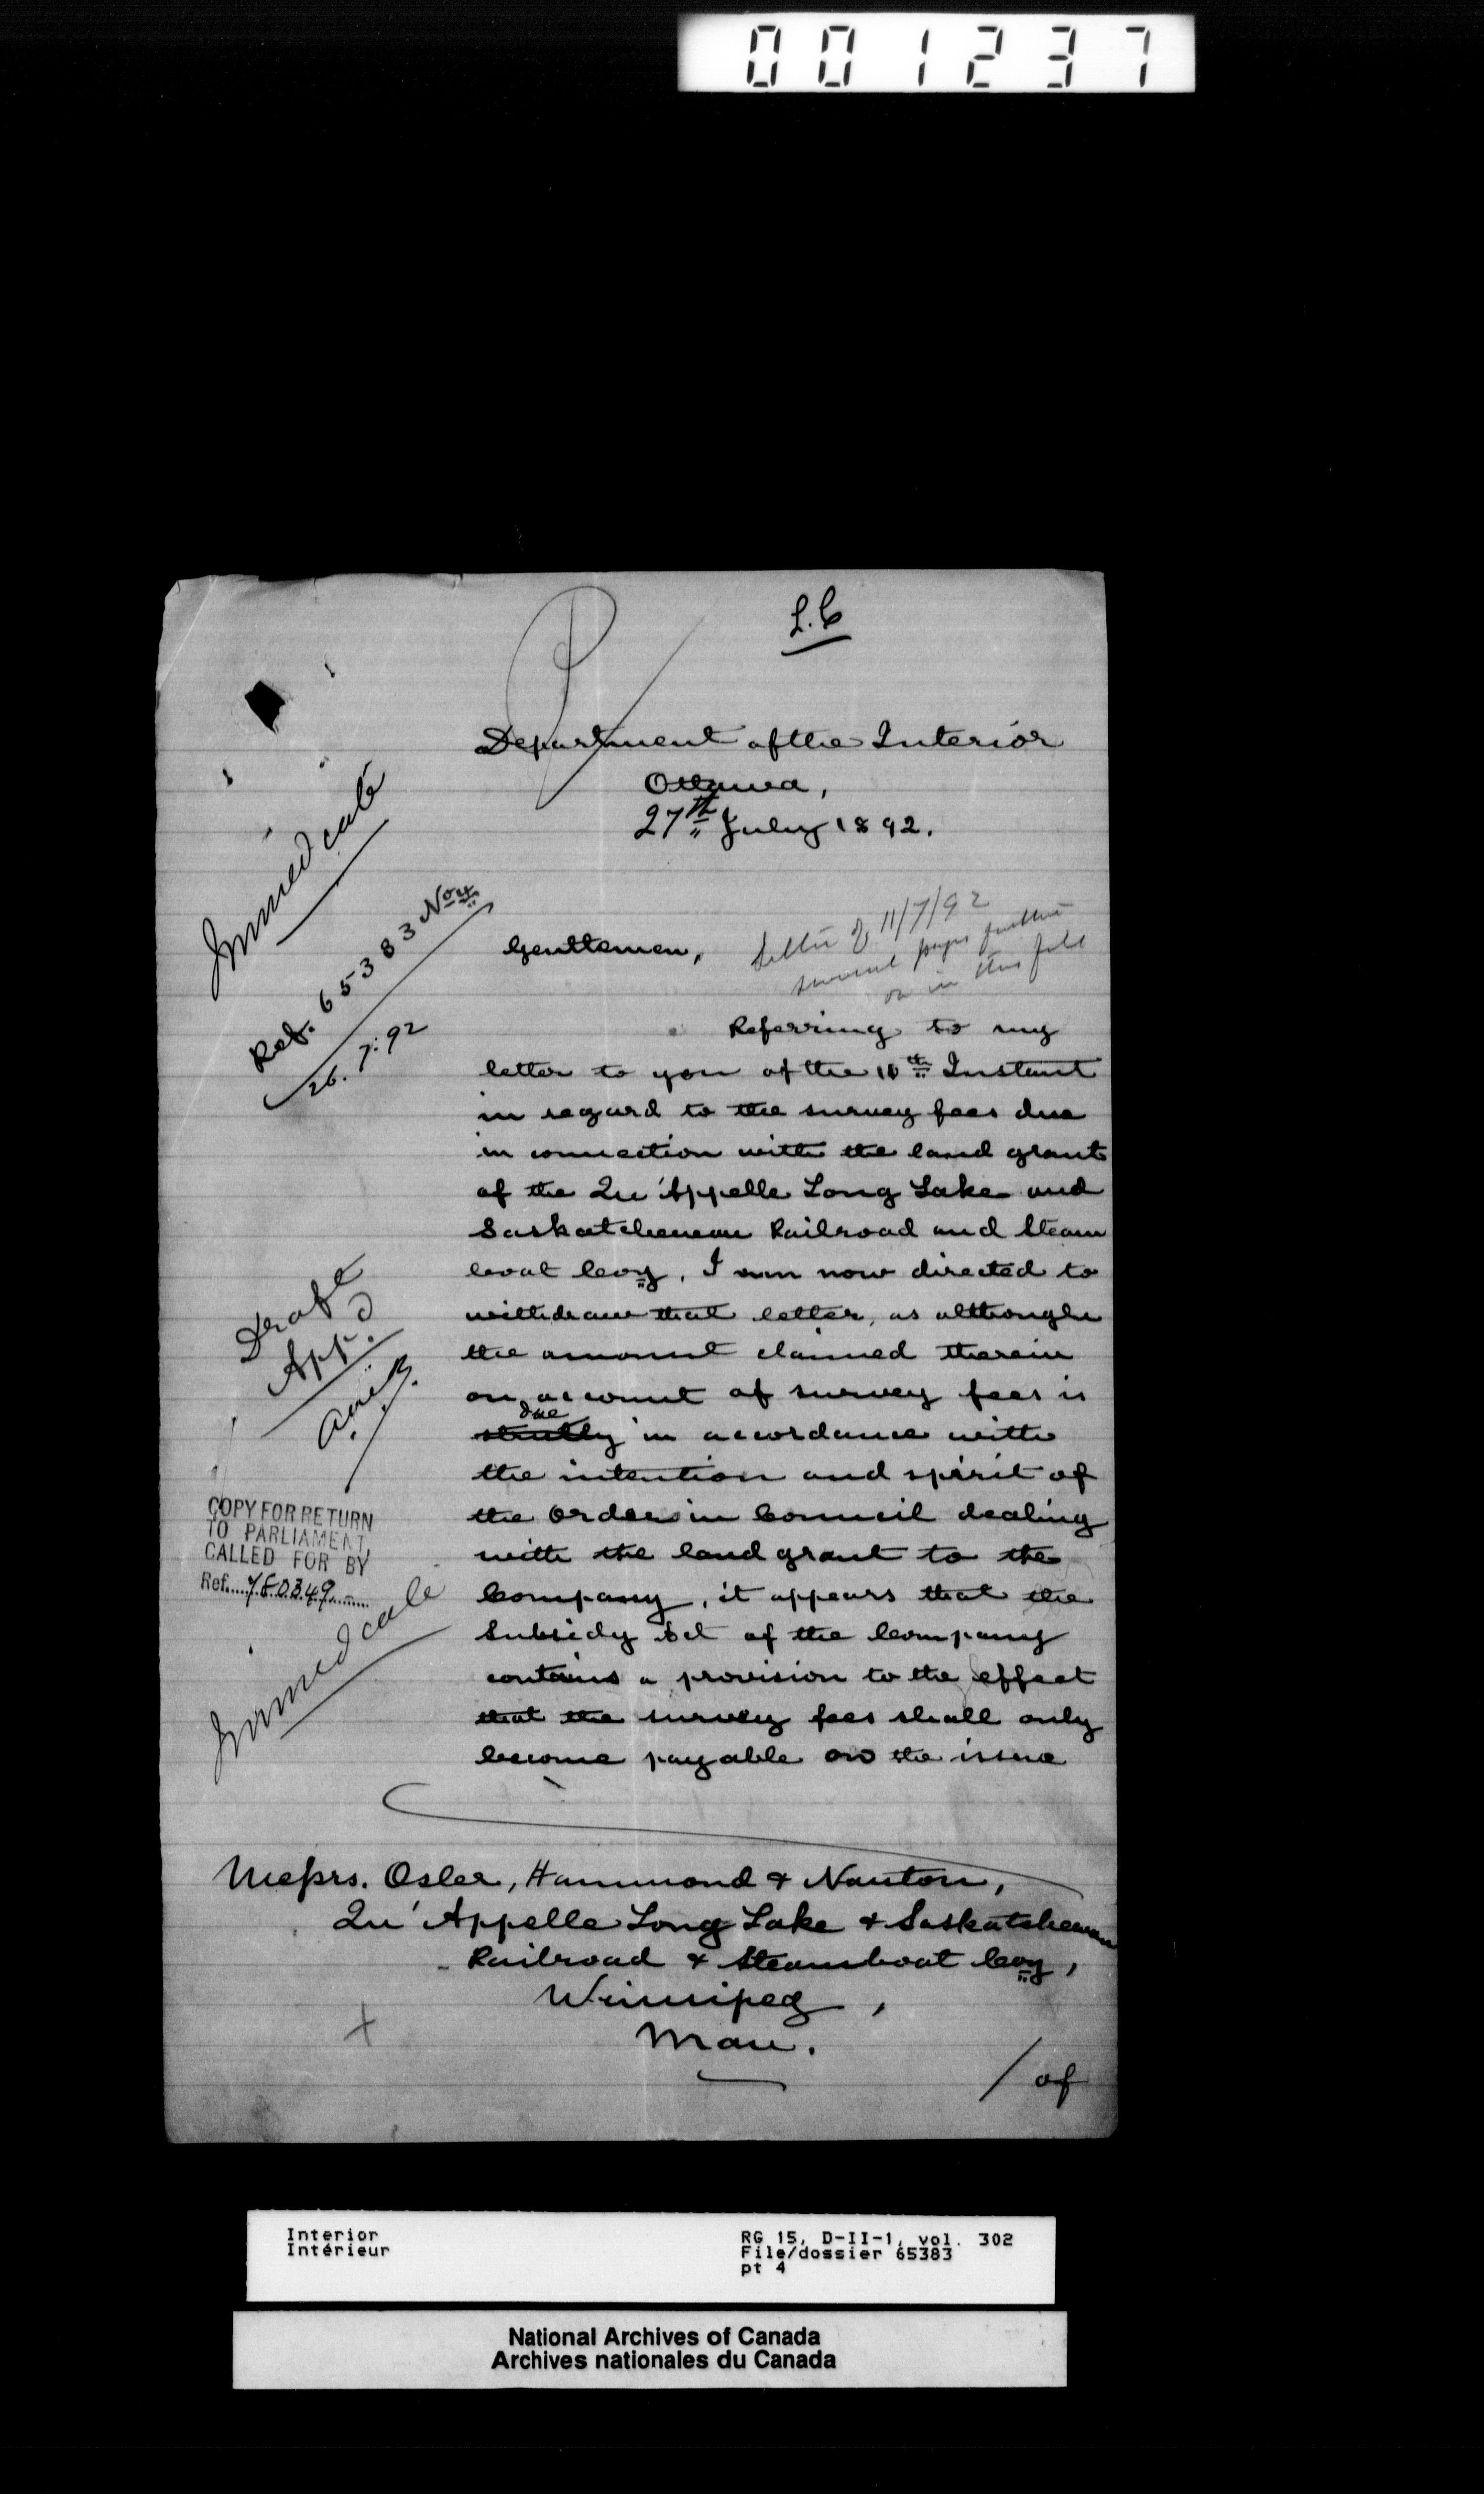 001237
L.C
Department of the Interior
Ottawa,
27th July 1892.
Immediate
Ref. 65383 Nor
26.7.92
Gentlemen,
Letter of 11/7/92
several pages further
on in this file
Referring to my
letter to you of the 11th Instant
in regard to the survey fees due
in connection with the land grant
of the Qu'Appelle Long Lake and
Saskatchewan Railroad and Steam
boat Coy, I am now directed to
withdraw that letter, as although
the amount claimed therein
on account of survey fees is
due
strictly in accordance with
the intention and spirit of
the Orders in Council dealing
with the land grant to the
Company, it appears that the
Subsidy Act of the Company
contains a provision to the effect
that the survey fees shall only
become payable on the issue
Draft
App.d
COPY FOR RETURN
TO PARLIAMENT,
CALLED FOR BY
Ref.
Immediate
Messrs. Osler, Hammond & Nanton,
Qu'Appelle Long Lake & Saskatchewan
Railroad & Steamboat Coy,
Winnipeg,
Man.
/ of
Interior
Intérieur
RG 15, D-II-1, vol. 302
File/dossier 65383
pt 4
National Archives of Canada
Archives nationales du Canada